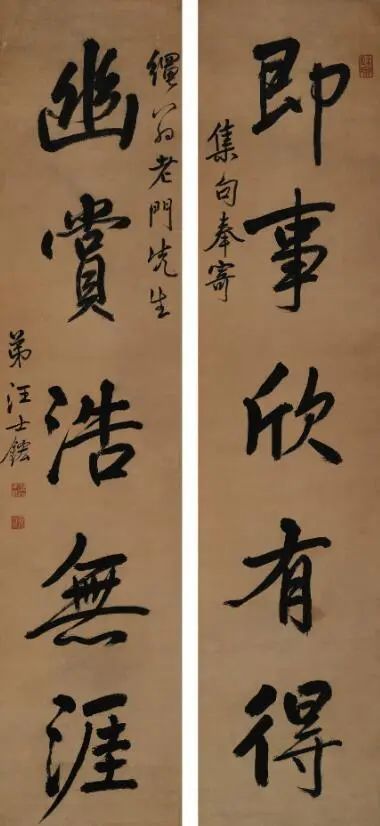 即事欣有得
集句奉寄
老門先生
幽賞浩無涯
弟汪士鋐